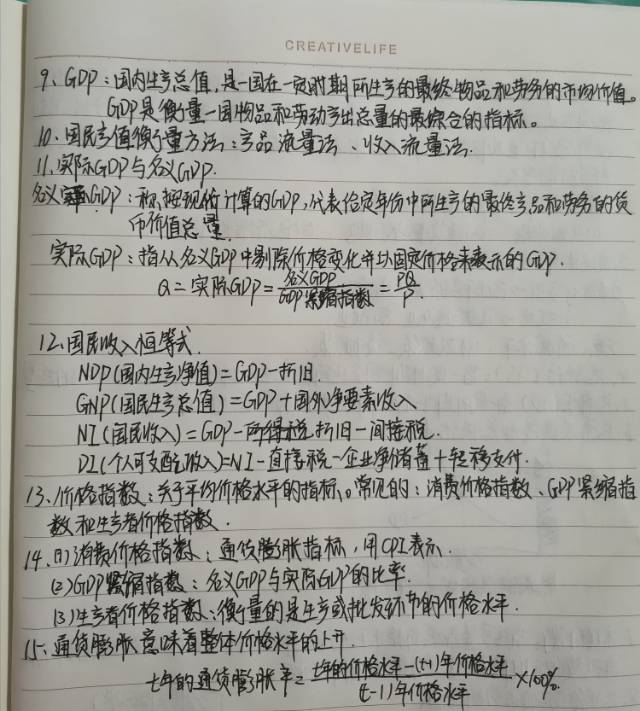 CREATIVELIFE
9、GDP：国内生产总值，是一国在一定时期所生产的最终物品和劳务的市场价值。
GDP是衡量一国物品和劳动产出总量的最综合的指标。
10、国民产值衡量方法：产品流量法、收入流量法.
11.实际GDP与名义GDP.
名义GDP：称按现价计算的GDP，代表给定年份中所生产的最终产品和劳务的货
币价值总量
实际GDP：指从名义GDP中剔除价格变化并以固定价格来表示的GDP.
Q = 实际GDP = 名义GDP/GDP紧缩指数 = PQ/P.
12.国民收入恒等式.
NDP(国内生产净值)=GDP-折旧.
GNP(国民生产总值)=GDP+国外净要素收入
NI(国民收入)=GDP-折旧-间接税.
DI(个人可支配收入)=NI-直接税-企业净储蓄+转移支付.
13、价格指数：关于平均价格水平的指标。常见的：消费价格指数、GDP紧缩指
数和生产者价格指数.
14.(1)消费价格指数：通货膨胀指标，用CPI表示.
(2)GDP紧缩指数：名义GDP与实际GDP的比率.
(3)生产者价格指数：衡量的是生产或批发环节的价格水平.
15、通货膨胀意味着整体价格水平的上升.
t年的通货膨胀率=t年的价格水平-(t-1)年价格水平/(t-1)年价格水平×100%.